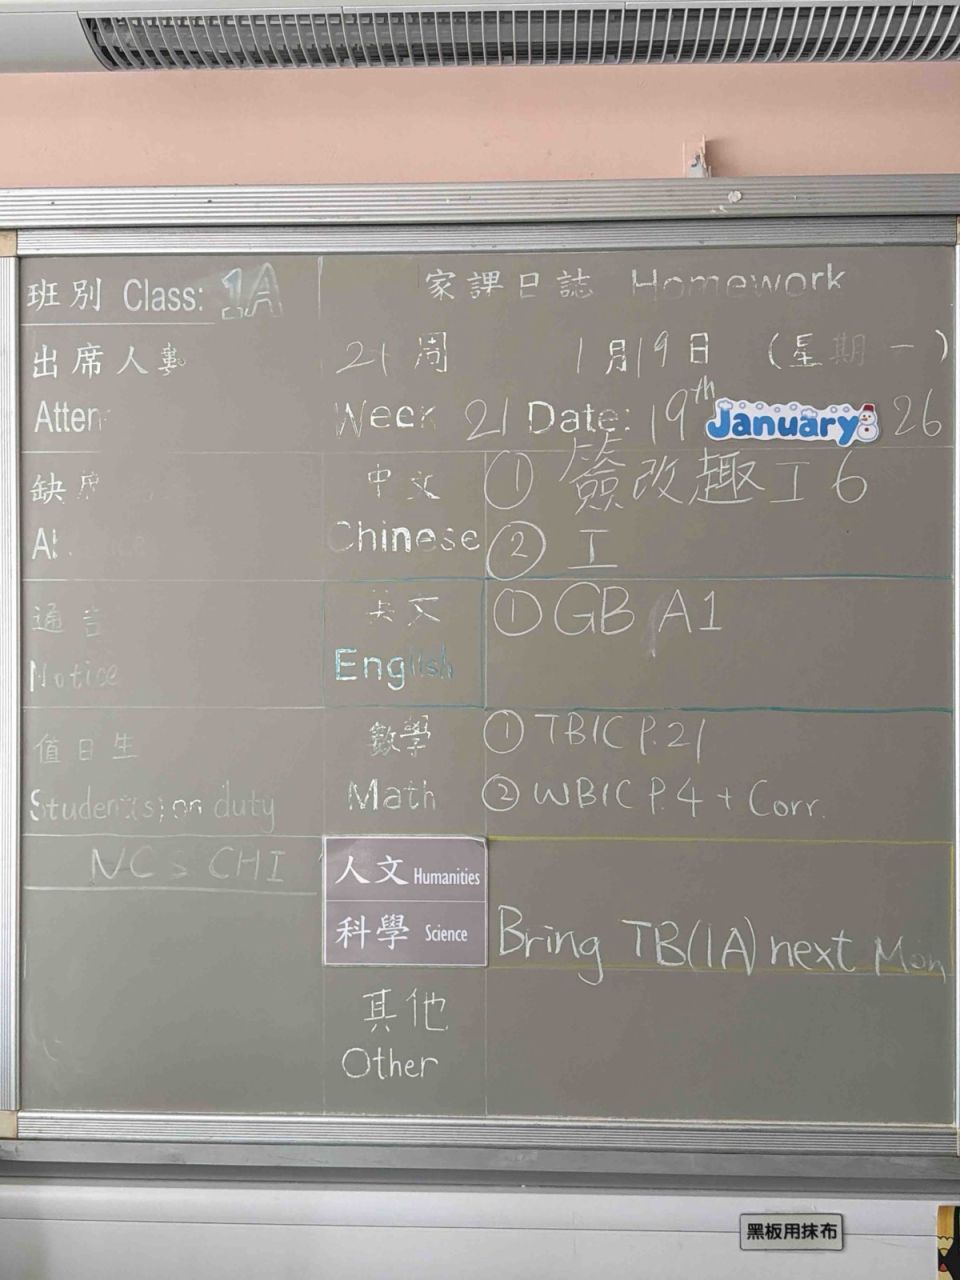 班別 Class: 1A
家課日誌 Homework
出席人數
21 周 1月19日 (星期一)
Atten
Week 21 Date: 19th January 26
缺席
中文 ① 簽改趣工6
Chinese ② 工
通告
英文 ① GB A1
Notice
English
值日生
數學 ① TB1C P.21
Student(s) on duty
Math ② WB1C P.4 + Corr.
NCS CHI
人文 Humanities
科學 Science Bring TB(1A) next Mon
其他
Other
黑板用抹布